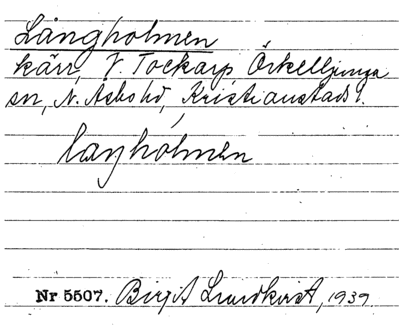 Långholmen
kärr, V. Tockarp, Örkelljunga
sn, N. Åsbo hd, Kristianstads l.
låŋhólmən
Nr 5507. Birgit Lundkvist, 1939.